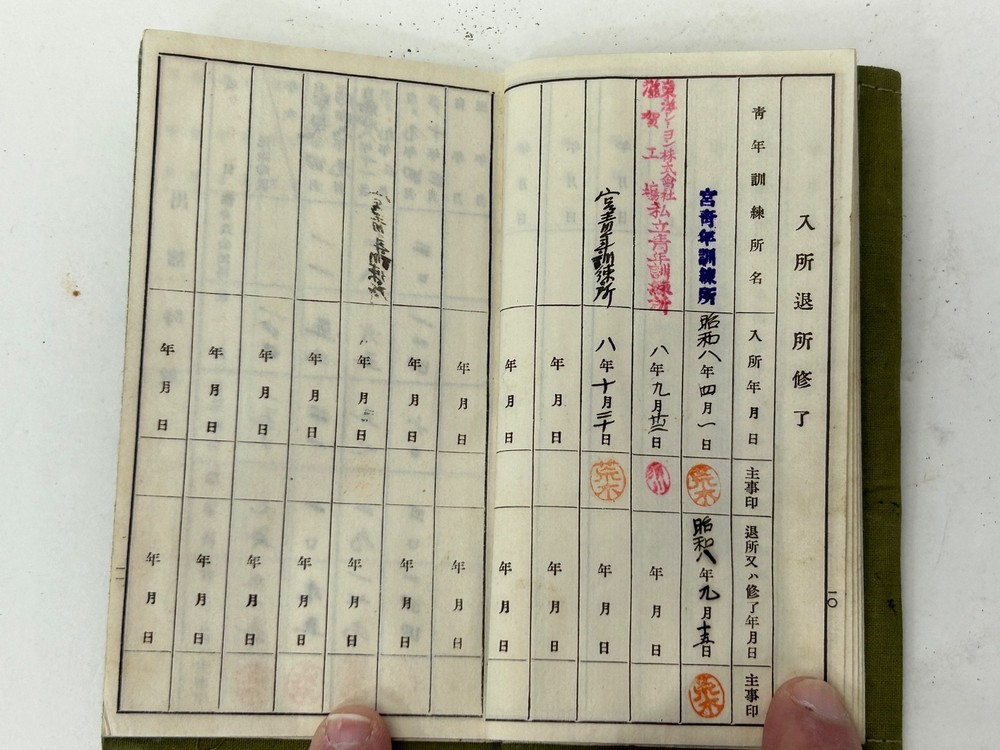 入所退所修了
靑年訓練所名
入所年月日
主事印
退所又ハ修了年月日
主事印
宮靑年訓練所
昭和八年四月一日
荒木
昭和八年九月十五日
荒木
東洋レーヨン株式會社
滋賀工場
私立靑年訓練所
八年九月廿二日
年月日
宮靑年訓練所
八年十月三十日
荒木
年月日
年月日
年月日
年月日
年月日
一〇
年月日
年月日
年月日
年月日
宮靑年訓練所
年月日
年月日
年月日
年月日
年月日
年月日
年月日
年月日
年月日
年月日
一一